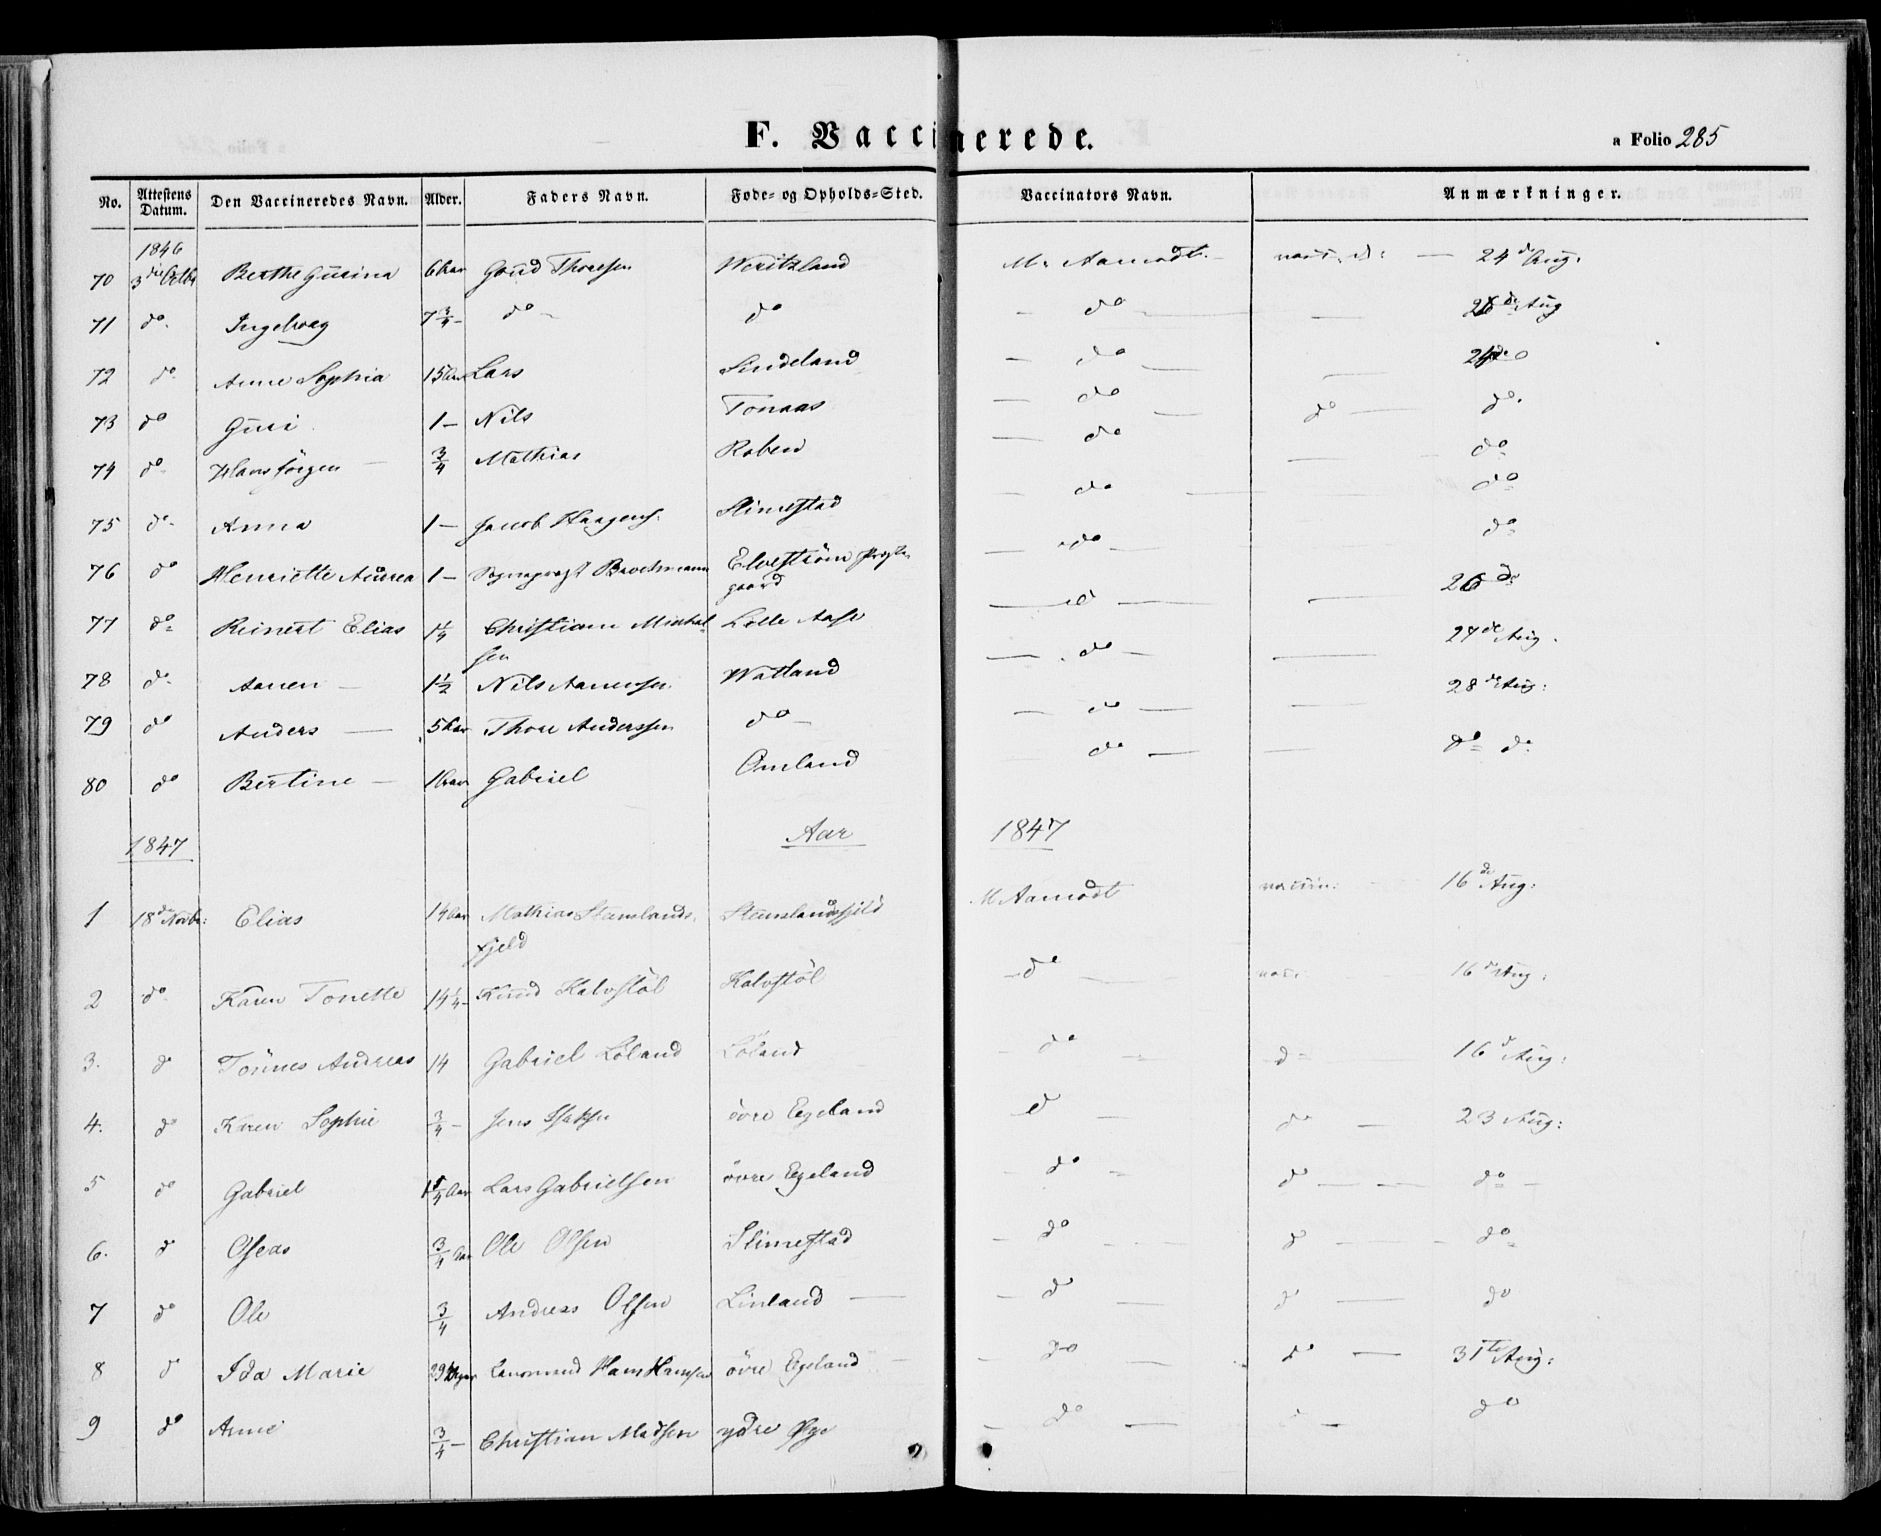 F. Vaccinerede.
a Folio 285
No. Attestens Datum. Den Vaccineredes Navn. Alder. Faders Navn. Føde- og Opholds-Sted. Vaccinators Navn. Anmærkninger.
1846
70 3die Octbr Berthe Gurina 6 Aar Gund Thoresen M. Aamodt. 24de Aug:
71 do Ingeborg 7 3/4 – do – do – do – 26de Aug
72 do Anne Sophia 15 Aar Lars Sindeland – do – 24de
73 do Guri 1 – Nils Tonaas – do – do – do.
74 do Hans Jörgen – 3/4 Mathias Roben – do do
75 do Anna 1 – Jacob Haagens. Slimestad – do – do
76 do Henriette Aurea 1 – Sogneprest Elveström Præste- – do – do
gaard
77 do Reinert Elias 1 1/4 Christian Michal- Lølle – d – 26 de
sen
78 do Aanen – 1 1/2 Nils Aanensen Watland – do – 27de Aug.
79 do Anders – 5 Aar Thore Anderssen do – – do – 28de Aug:
80 do Bertine – Gabriel Omland do – do do
1847 Aar 1847
1 18de Novbr: Elias 14 Aar Mathias Stamslands- Stamslandsfjeld M Aamodt vaccin: 16de Aug:
fjeld
2 do Karen Tonette 14 1/4 – Knud Kalvstöl Kalvstöl – do – vac: 16de Aug:
3. do Tönnes Andreas 14 Gabriel Löland Löland – do – d – 16d Aug:
4. do Karen Sophie 3/4 – Jens övre Egeland d – do – 23 Aug:
5 do Gabriel Lars Gabrielsen övre Egeland – do – do – – do –
6. d Oseas 3/4 Aar Ole Olsen Slimestad – do – d – – do
7 do Ole 3/4 Andreas Olsen Linland – – do – d – do
8 d Ida Marie Lensmand Hans Hansen övre Egeland – – do – do – 31te Aug:
9 do Anne 3/4 – Christian Madsen ydre Øye – do – d – do